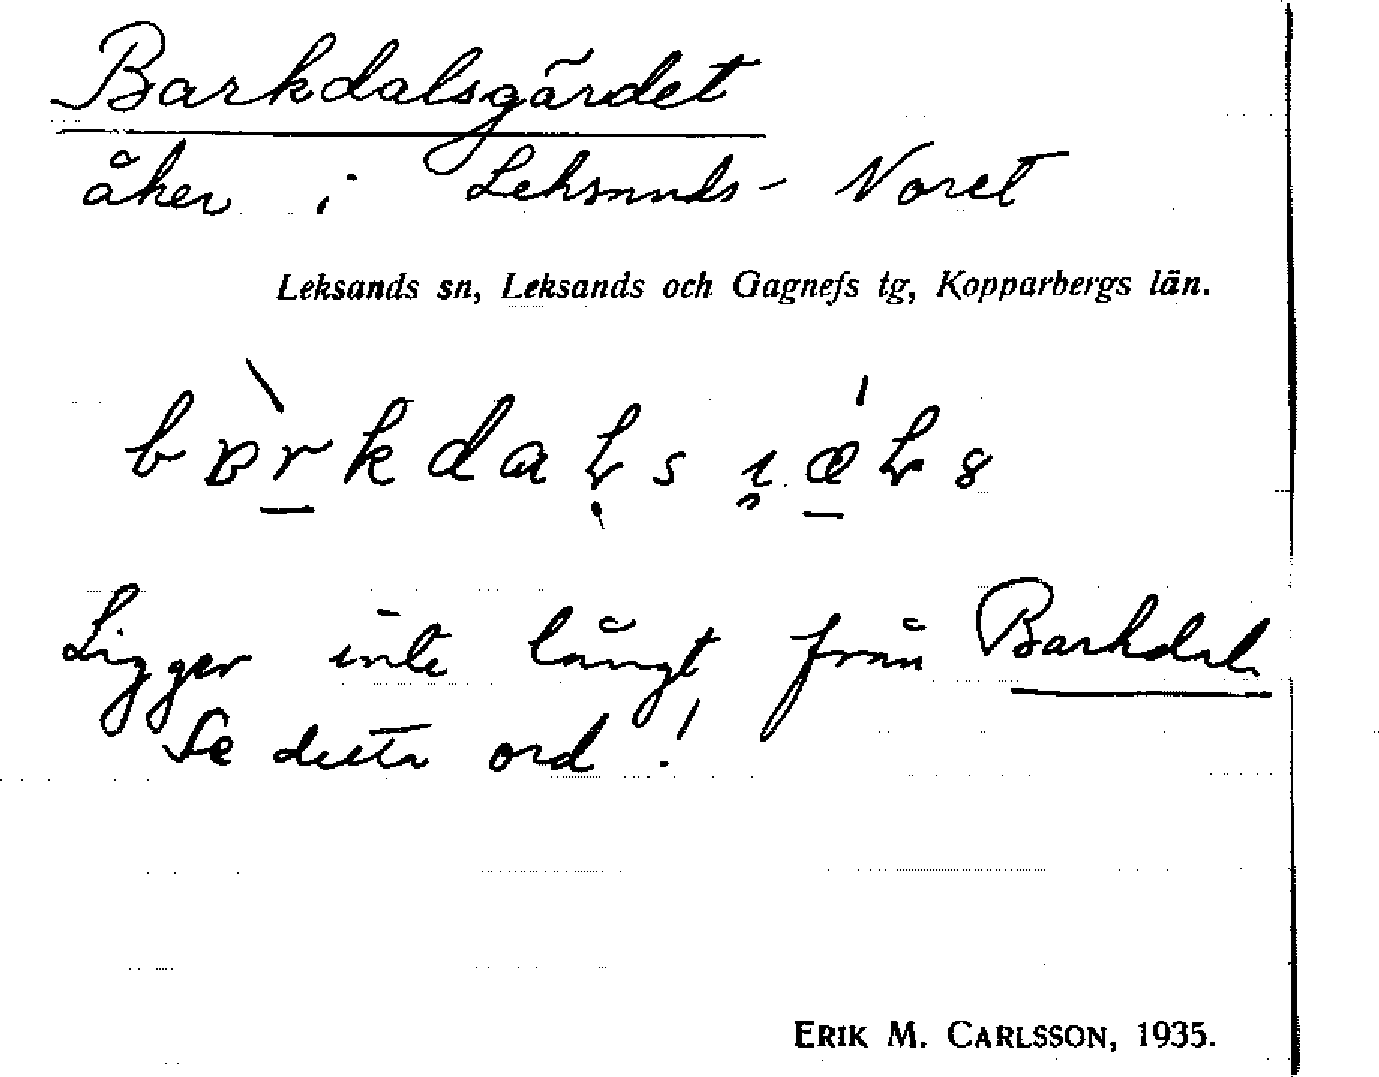 Barkdalsgärdet
åker i Leksands-Noret
Leksands sn, Leksands och Gagnefs tg, Kopparbergs län.
Ligger inte långt från Barkdal.
Se detta ord!
ERIK M. CARLSSON, 1935.